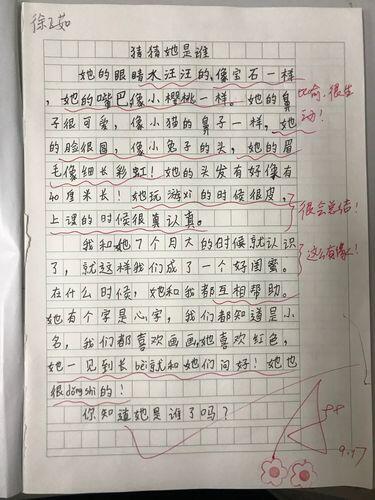 徐乙茹
猜猜她是谁
她的眼睛水汪汪的,像宝石一样
,她的嘴巴像小樱桃一样。她的鼻
子很可爱,像小猫的鼻子一样,她
的脸很圆,像小兔子的头,她的眉
毛像细长彩虹!她的头发有好像有
40厘米长!她玩游xi的时候很皮,
上课的时候很真认真。
我和她7个月大的时候就认识
了,就这样我们成了一个好闺蜜。
在什么时候,她和我都互相帮助。
她有个字是心字,我们都知道是小
名,我们都喜欢画画,她喜欢红色,
她一见到长bèi就和她们问好!她也
很dǒng shì的!
你知道她是谁了吗?
比喻很生
动!
很会总结!
这么有缘!
9.17